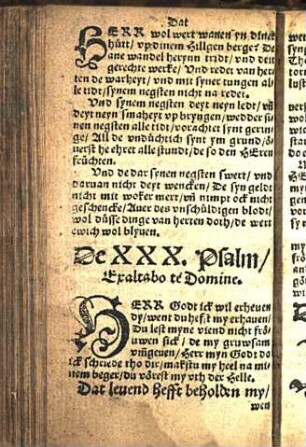 Dat
HERR wol wert wanen yn dlner
hütt / vp dinem Hillgen berge? De
ane wandel herynn tridt / vnd deit
gerechte wercke / Vnd redet van her-
ten de warheyt / vnd mit syner tungen al
le tidt / synem negsten nicht na redet.
Vnd synem negsten deyt neyn ledt / vñ
deyt neyn smaheyt vp bryngen / wedder si-
nen negsten alle tidt / vorachtet synt gerin-
ge / All de vndüchtich synt ym grund / ö-
uerst he ehret alle stundt / de so den HEren
früchten.
Vnd de dar synen negsten swert / vnd
daruan nicht deyt wencken / De syn geldt
nicht mit woker mert / vñ nimpt ock nicht
geschencke / Auer des vnschüldigen blodt /
wol düsse dinge van herten doth / de wert
ewich wol blyuen.
De XXX. Psalm /
Exaltabo te Domine.
HERR Godt ick wil erheuen
dy / went du hefst my erhauen /
Du lest myne viend nicht frö-
uwen sick / de my gruwsam
vmgeuen / Herr myn Godt do
ick schriede tho dir / makstu my heel na mi-
nem beger / du vörest my vth der Helle.
Dat leuend hefft beholden my /
wen